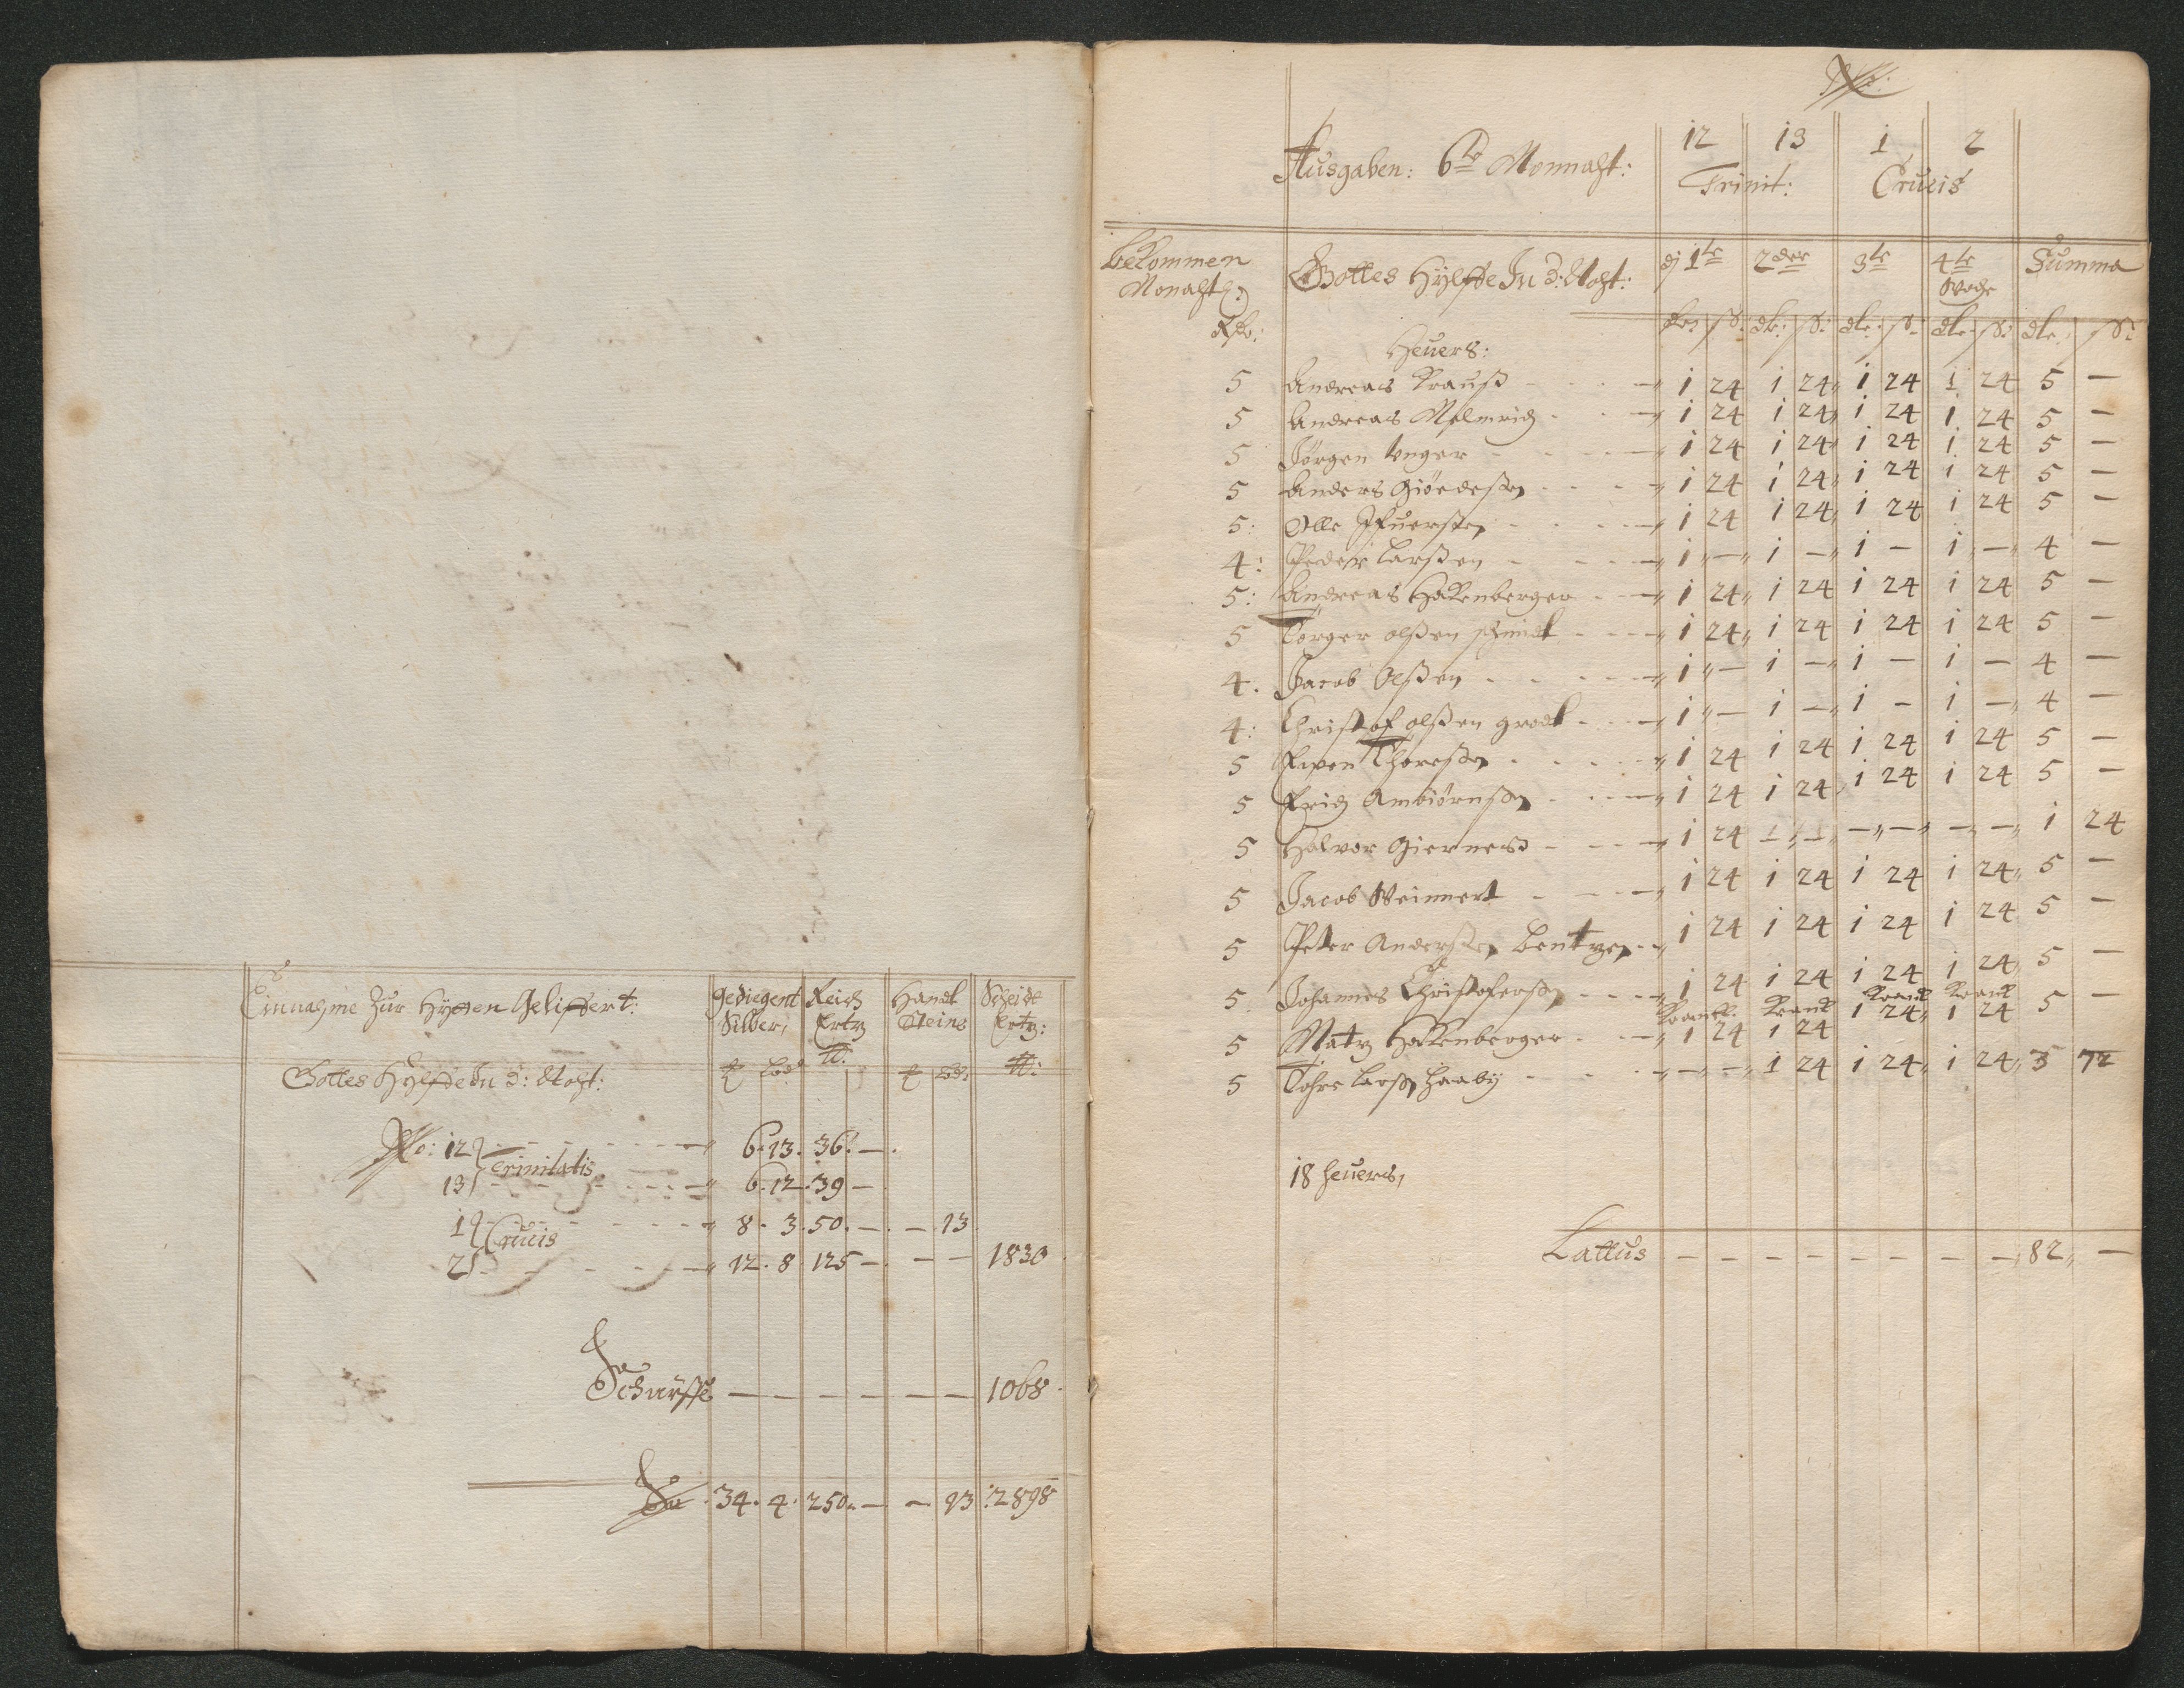 Einnahme Zur Hytten Geliffert:
Gediegent Silber, Reich Ertz Handt Steine Scheide Ertz:
Gottes Hylffe In d: Noht:
No: 12 Trinitatis 6 . 13 . 36 . —
13 6 . 12 . 39 —
1 Crucis 8 . 3 . 50 . — — 13
2 12 . 8 125 — — — 1830
Schürffe — — — — — — 1068
Sa 34 . 4 . 250 . — — 13 : 2898
12 13 1 2
Ausgaben: 6te Monnaht: Trinit: Crucis
bekommen Monahtl:
Gottes Hylffe In d: Noht: dj 1te 2der 3te 4te Woche Summa
Rdr: dlr: ß: dlr: ß: dlr: ß: dlr: ß: dlr: ß:
Heuers:
5 Andreas Krauß 1 24 1 24 1 24 1 24 5 —
5 Andreas Melmrich 1 24 1 24 1 24 1 24 5 —
5 Jörgen Unger 1 24 1 24 1 24 1 24 5 —
5 Anders Giöedeßen 1 24 1 24 1 24 1 24 5 —
5: Olle Ifuerßen 1 24 1 24 1 24 1 24 5 —
4: Peder Larßen 1 — 1 — 1 — 1 — 4 —
5: Andreas Hakenberger 1 24 1 24 1 24 1 24 5 —
5 Torger olßen schmidt 1 24 1 24 1 24 1 24 5 —
4. Jacob Olßen 1 — 1 — 1 — 1 — 4 —
4: Christof olßen grodt 1 — 1 — 1 — 1 — 4 —
5 Even Thoreßen 1 24 1 24 1 24 1 24 5 —
5 Erich Ambiörnßen 1 24 1 24 1 24 1 24 5 —
5 Halvor Giernes 1 24 — — — — — — 1 24
5 Jacob Weinnert 1 24 1 24 1 24 1 24 5 —
5 Peter Anderßen bentzen 1 24 1 24 1 24 1 24 5 —
5 Johannes Christoferßen 1 24 1 24 1 24 1 24 5 —
Krankt. Krankt Krankt Krankt
5 Matz Hakenberger 1 24 1 24 1 24 1 24 5 —
5 Tohre Larßen haaby — — 1 24 1 24 1 24 3 72
18 heuers,
Lattus — — — — — — — — 82 —